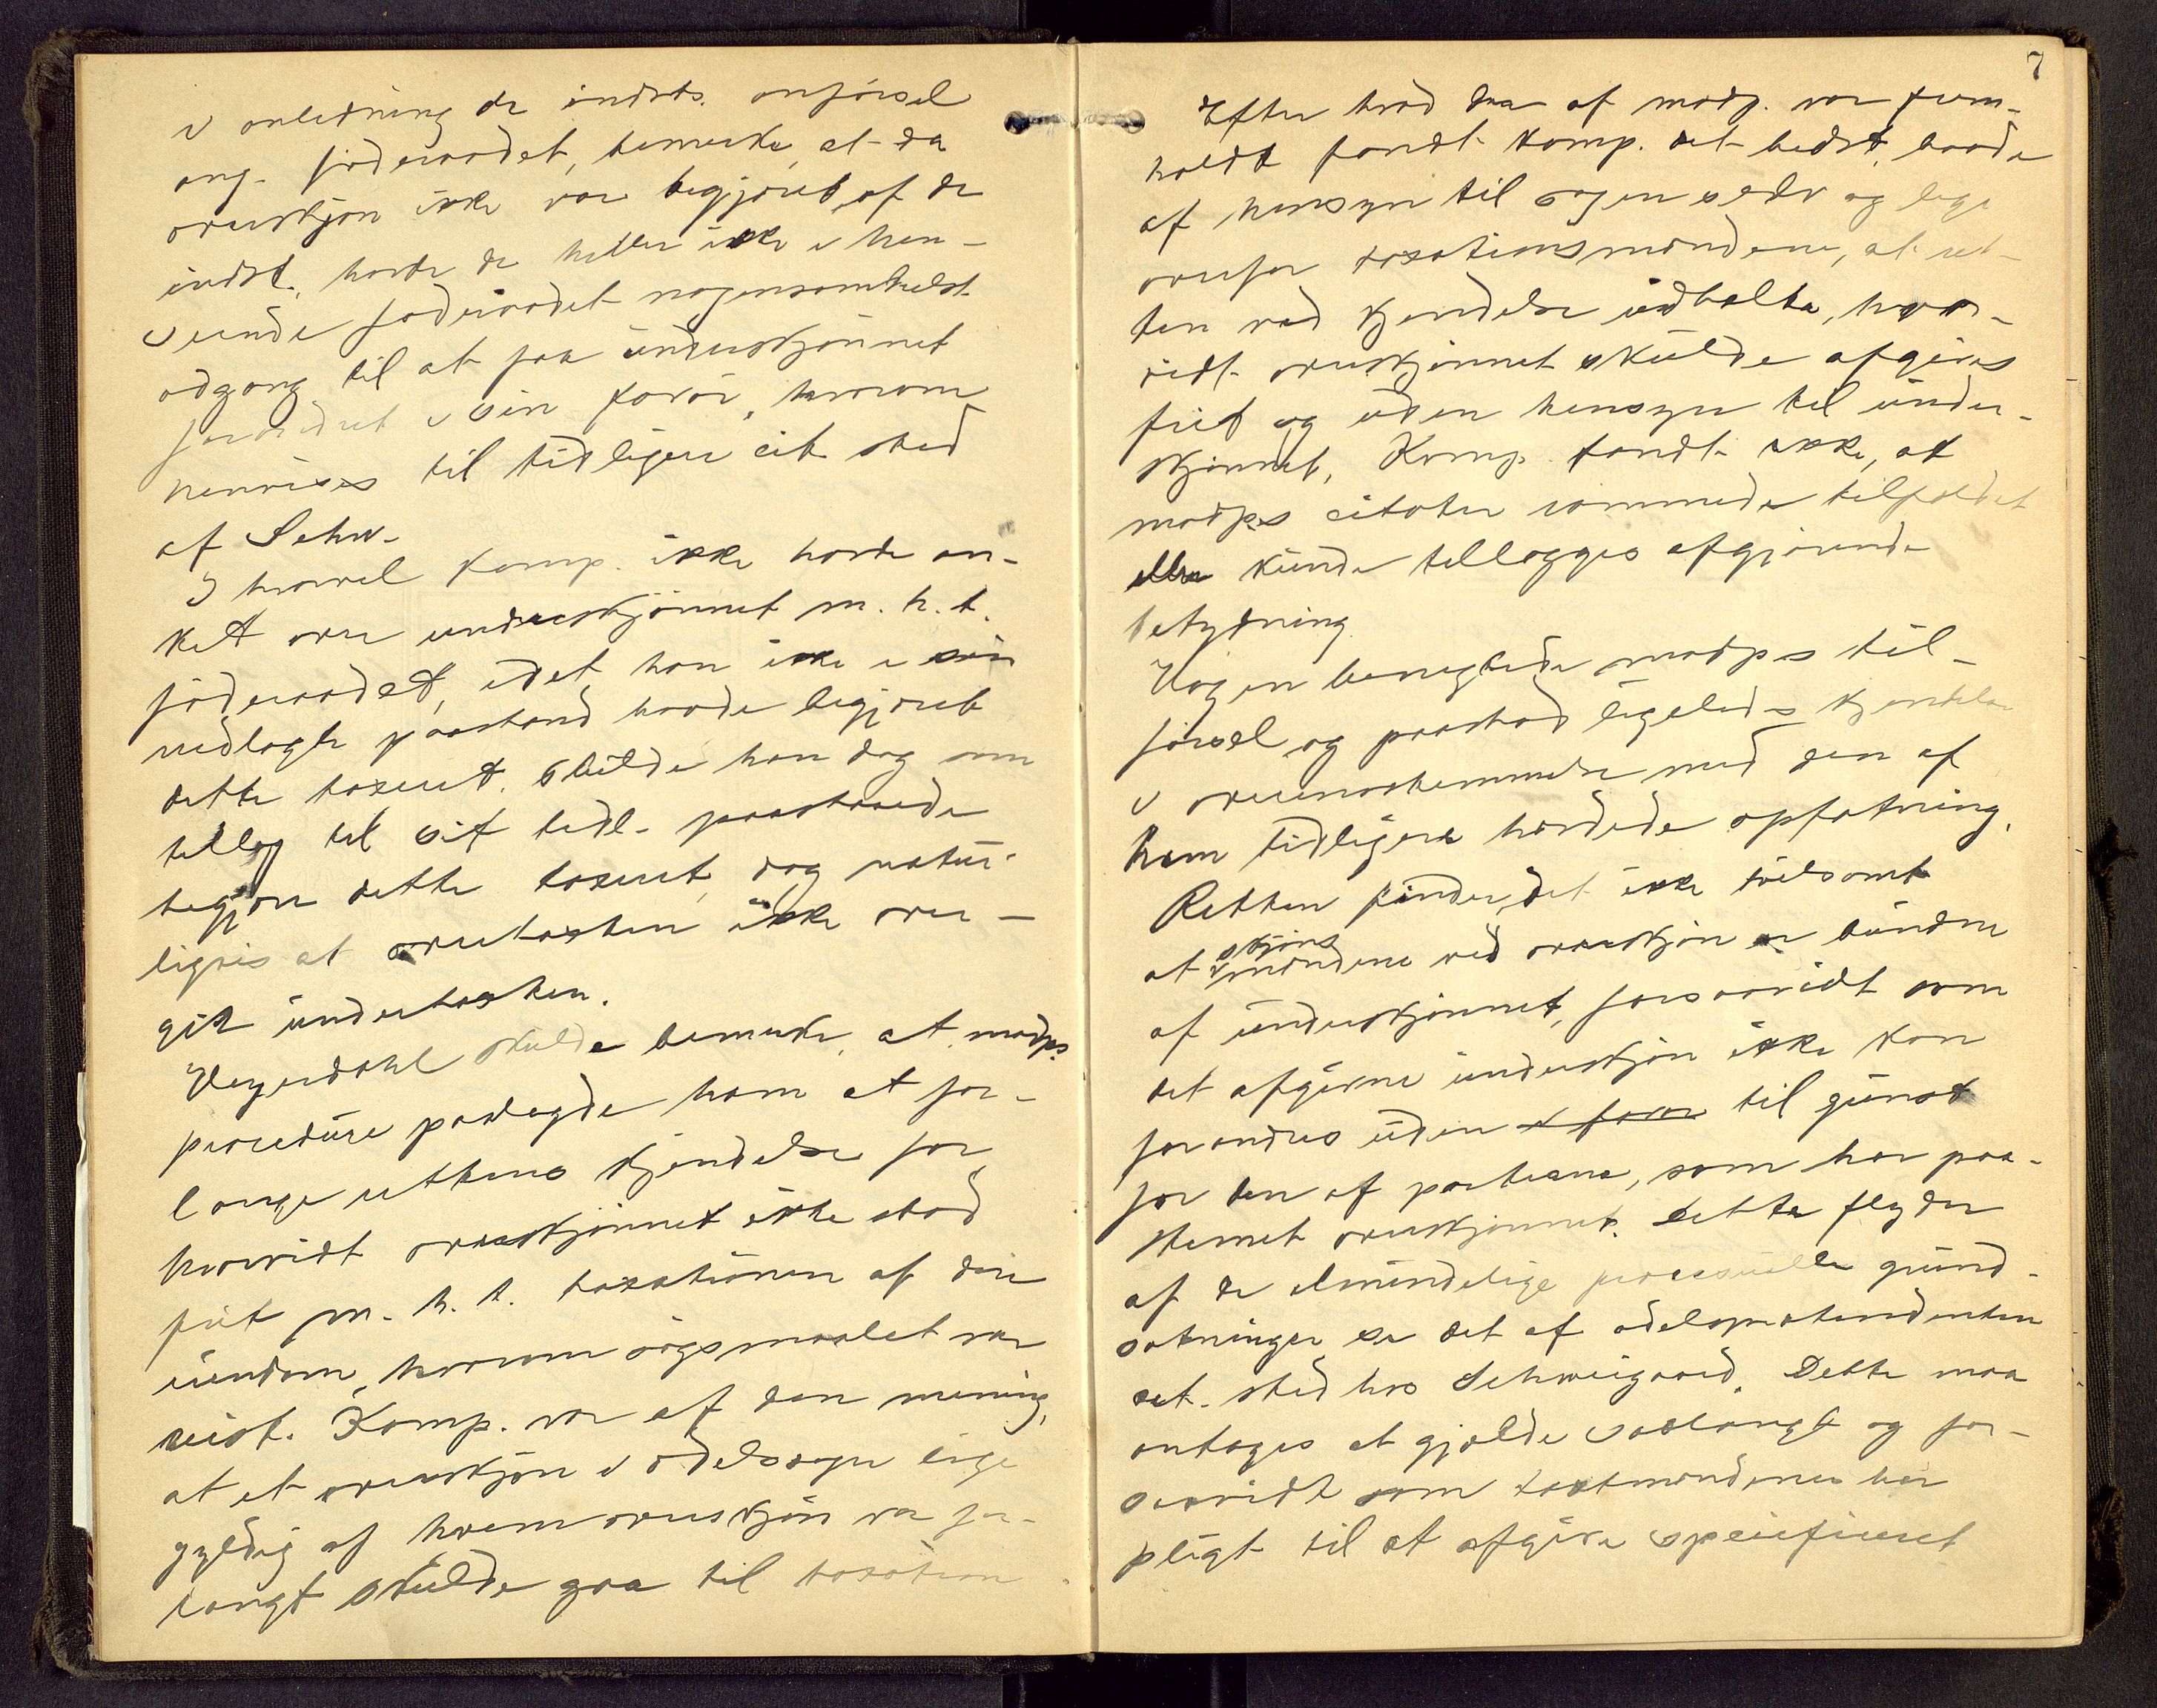 i anledning de indst. anförsel
ang. jöderaadet, bemerke, at da
overskjön ikke var begjæret af de
indst., havde de heller ikke i hen-
seende jöderaadet nogensomhelst
adgang til at faa underskjönnet
forandret i sin favör, hvorom
henvises til tidligere cit. sted
af Schw.
I hvorvel komp. ikke havde an-
ket over underskjönnet m. h. t.
jöderaadet, idet han ikke i sin
nedlagte paastand havde begjæret
dette taxeret, skulde han dog som
tillæg til sit tidl. paastaaede
begjære dette taxeret, dog natur-
ligvis at overtaxten ikke over-
gik undertaxten.
Heyerdahl skulde bemerke, at modp.s
procedure paalagde ham at for-
lange rettens kjendelse for,
hvorvidt overskjönnet ikke stod
frit m. h. t. taxationen af den
eiendom, hvorom sögsmaalet var
reist. Komp. var af den mening,
at et overskjön i odelssager lige
gyldig af hvem overskjön var for-
langt skulde gaa til taxation
7
Efter hvad der af modp. var frem-
holdt fandt komp. det bedst, baade
af hensyn til sagen selv og lige
overfor taxationsmændene, at ret-
ten ved kjendelse udtalte, hvor-
vidt overskjönnet skulde afgives
frit og uden hensyn til under-
skjönnet. Komp. fandt ikke, at
modp.s citater rammede tilfældet
eller kunde tillægges afgjörende
betydning.
Hagen benegtede modp.s til-
försel og paastod ligeledes kjendelse
i overensstemmelse med den af
ham tidligere hævdede opfatning.
Retten finder det ikke tvilsomt
at skjönsmændene ved overskjön er bundne
af underskjönnet, forsaavidt som
det afgivne underskjön ikke kan
forandres uden til gunst
for den af parterne, som har paa-
stevnet overskjönnet. Dette flyder
af de almindelige processuelle grund-
sætninger se det af odelsprætendenten
cit. sted hos Schweigaard. Dette maa
antages at gjælde saalangt og for-
saavidt som taxtmændene har
pligt til at afgive specificeret